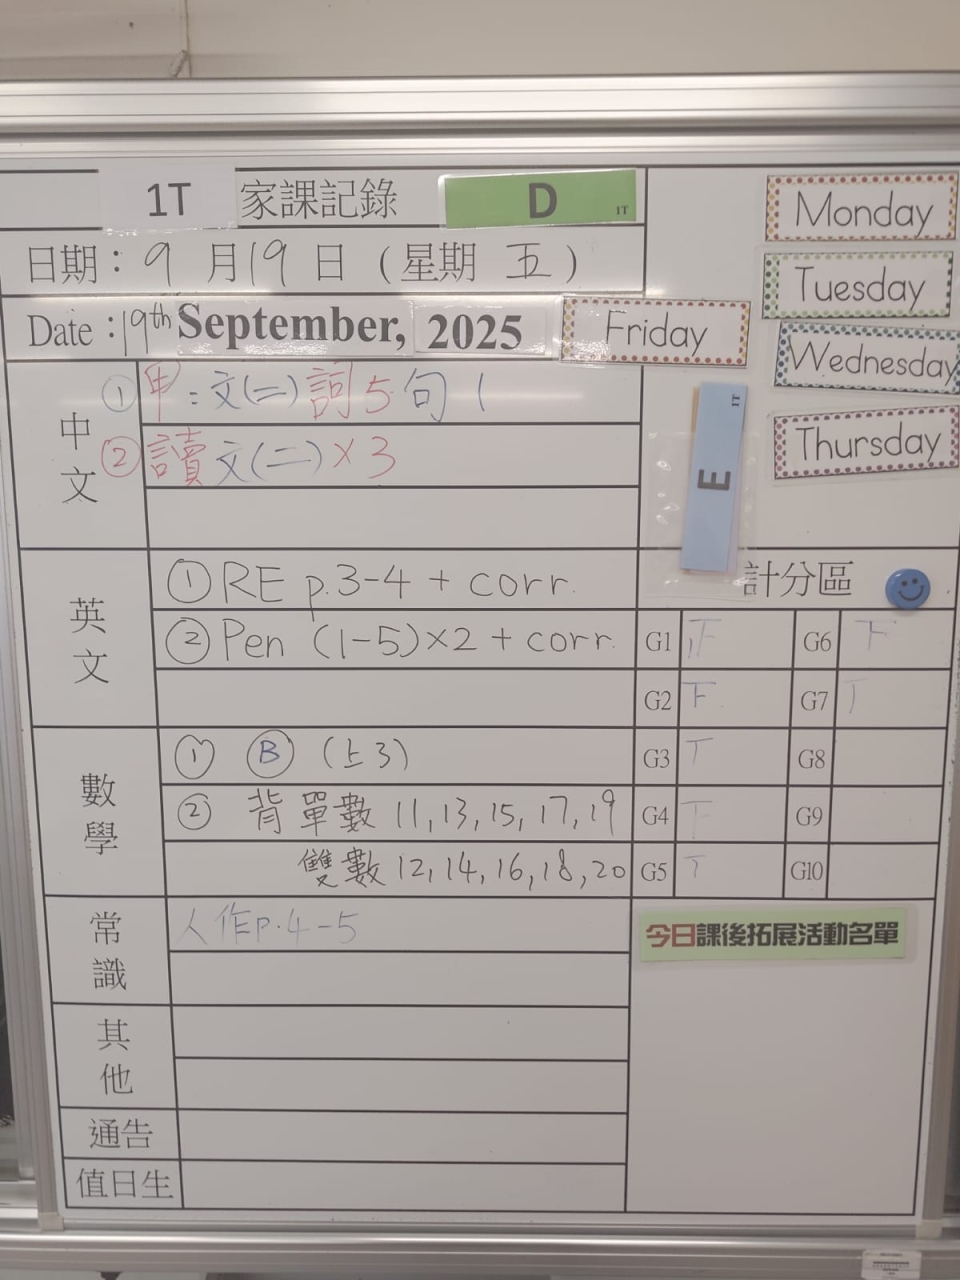 1T 家課記錄 D 1T
日期：9月19日（星期五）
Date：19th September, 2025 Friday
Monday
Tuesday
Wednesday
Thursday
E 1T
中文
① 甲：文(二)詞5句1
② 讀文(二)×3
英文
① RE p.3-4 + corr.
② Pen (1-5)×2 + corr.
數學
① Ⓑ (上3)
② 背單數 11, 13, 15, 17, 19
雙數 12, 14, 16, 18, 20
常識
人作p.4-5
其他
通告
值日生
計分區
G1 G6
G2 G7
G3 G8
G4 G9
G5 G10
今日課後拓展活動名單